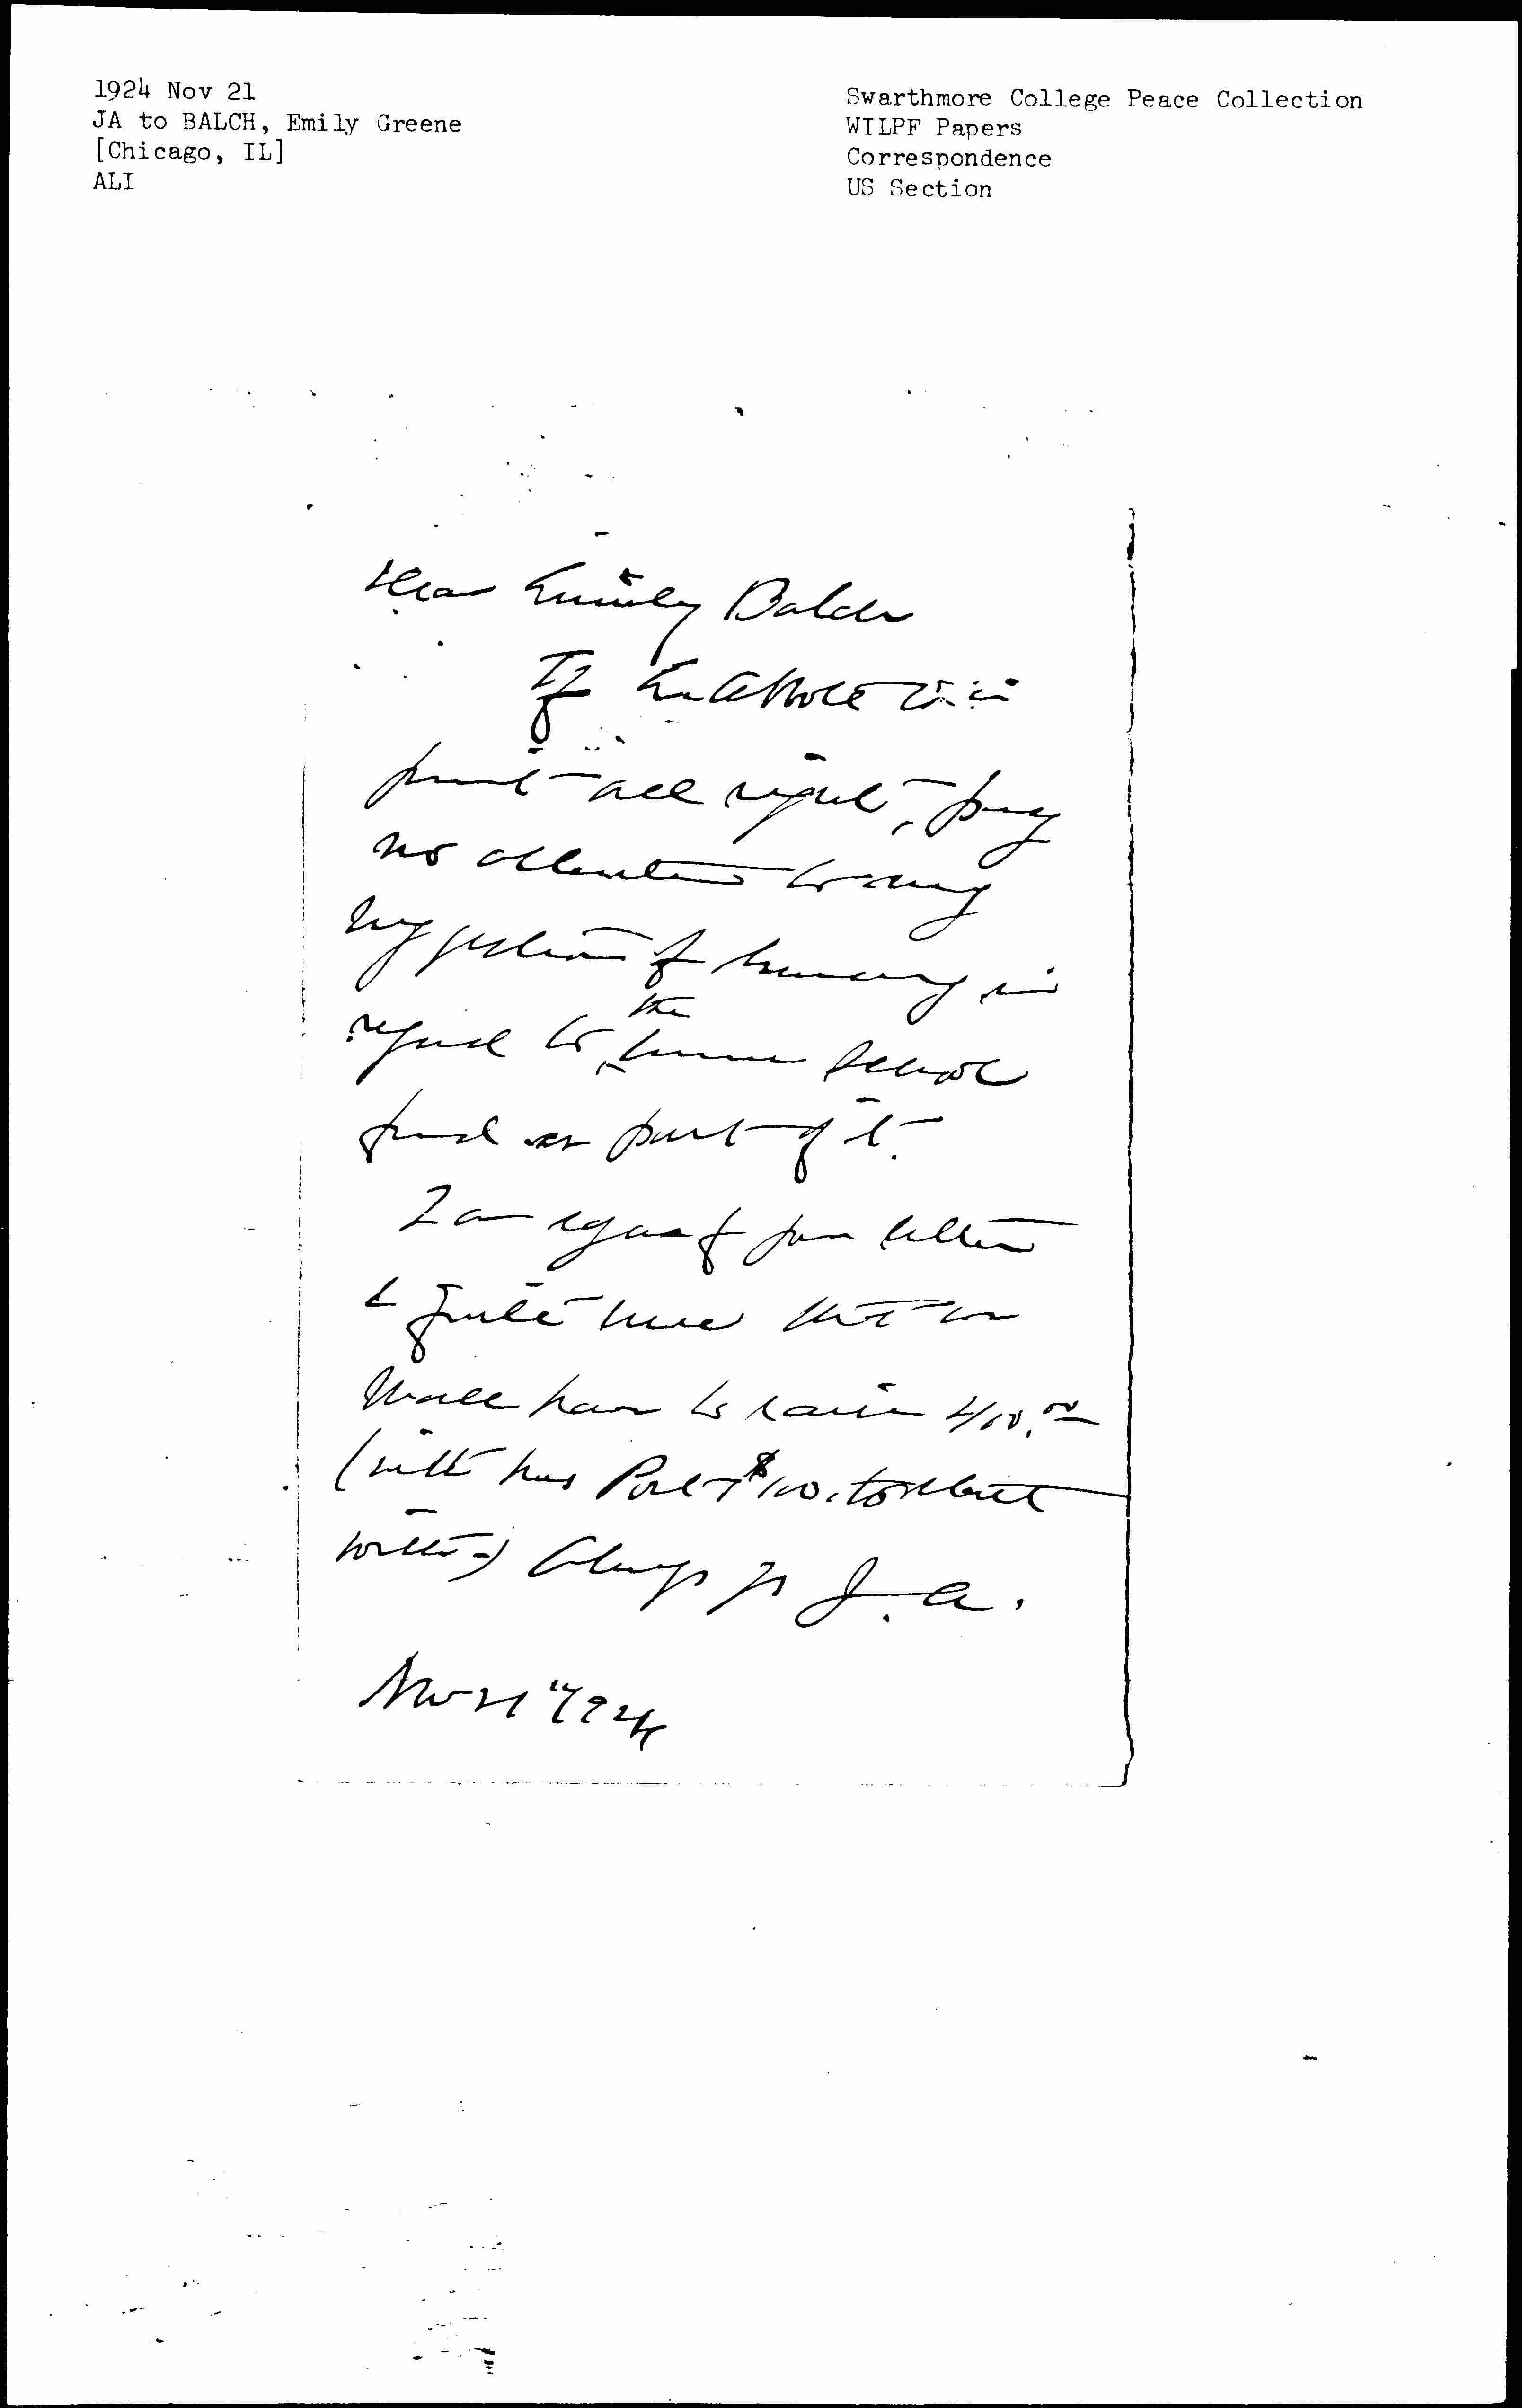 1924 Nov 21
JA to BALCH, Emily Greene
[Chicago, IL]
ALI
Swarthmore College Peace Collection
WILPF Papers
Correspondence
US Section
Dear Emily Balch
If
all right, pay
no attention to my
suggestion of in
regard to the summer school
fund as part of it.
I am of your letter
& quite sure that we
shall have to raise 400.00
(with Post $100. to start
with) Always yrs J. A.
Nov 21" 1924